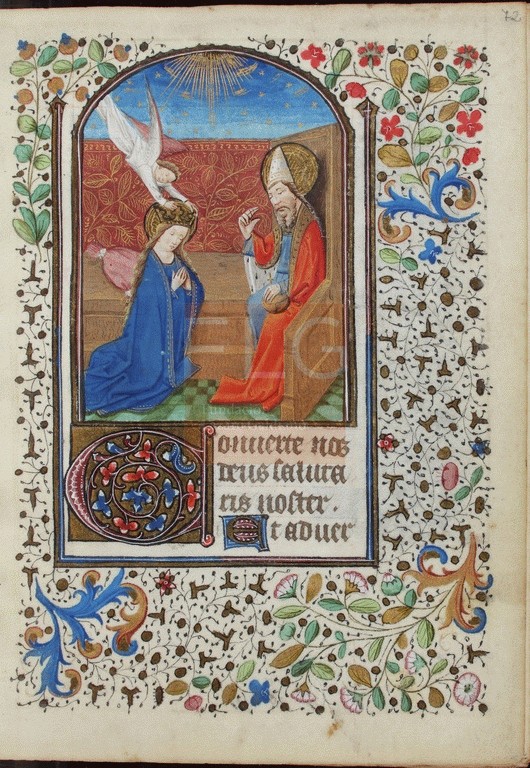 72
FLG
Conuerte nos
deus saluta
ris noster.
Et aduer